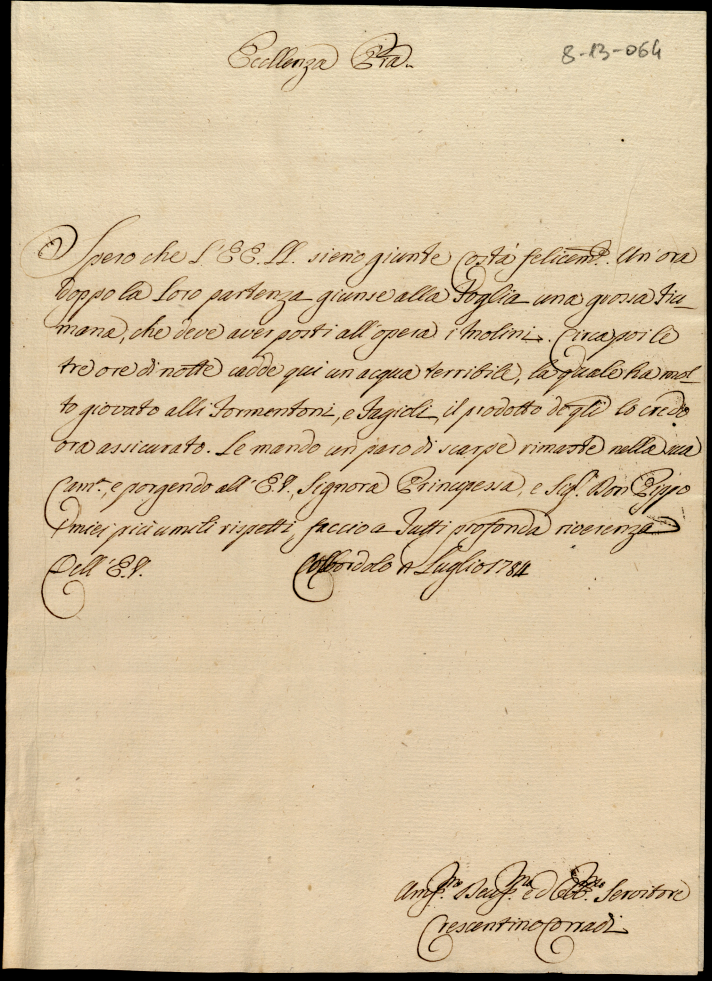 Eccellenza Pra.
8-13-064
Spero che l'EE. LL. sieno giunte costà felicem.te Un'ora
doppo la Loro partenza giunse alla Foglia una grossa fiu-
mana, che deve aver posti all'opera i Molini. Circa poi le
tre ore di notte cadde qui un acqua terribile, la quale ha mol-
to giovato alli Formentoni, e Fagioli, il prodotto degli lo credo
ora assicurato. Le mando un paro di scarpe rimaste nella sua
Cam.a, e porgendo all'E.V., Signora Principessa, e Sig.r Don Peppo
i miei più umili rispetti, faccio a Tutti profonda riverenza
Dell'E.V.
Colbordolo Luglio 1784
Dev. ed Obb. Servitore
Crescentino Corradi